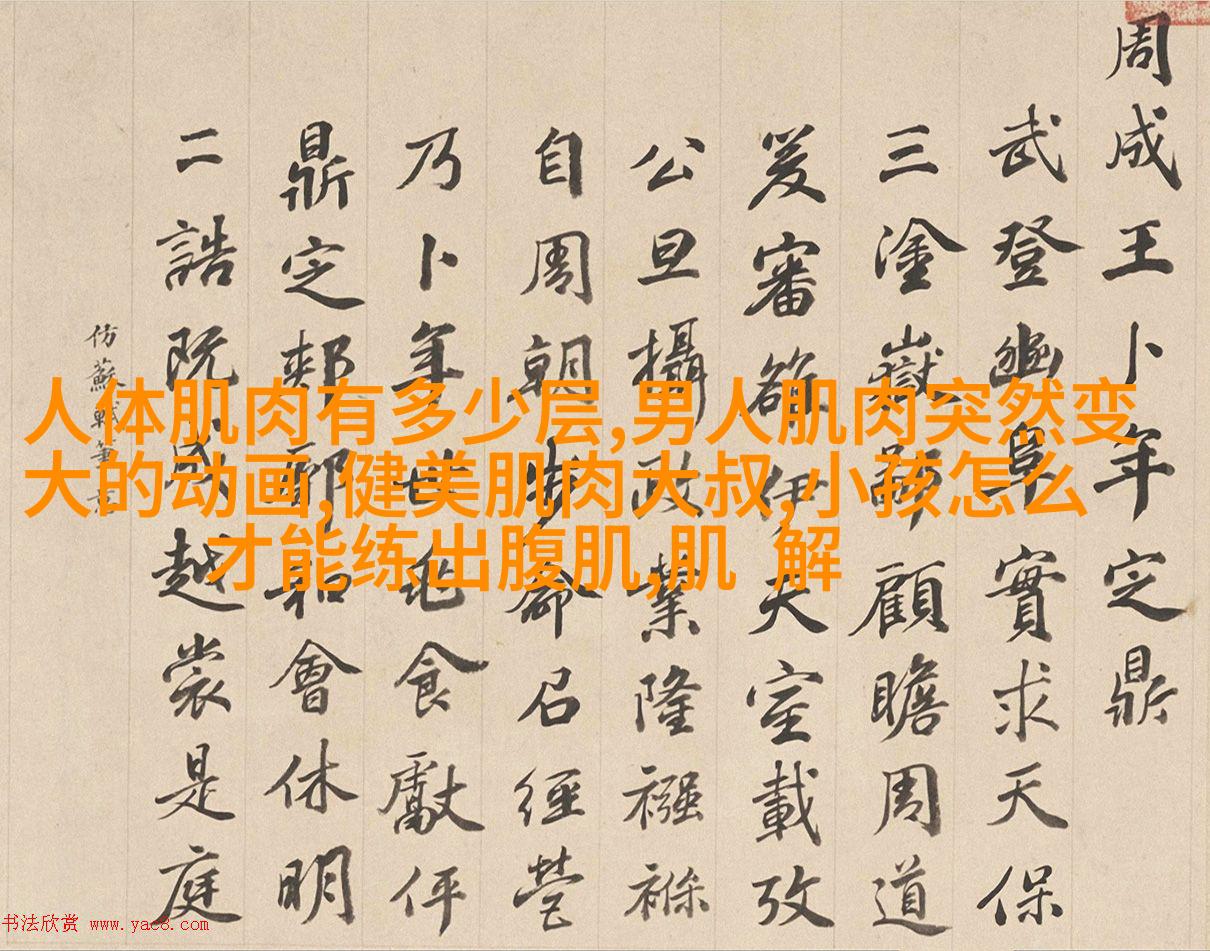 周成王卜年定鼎
武登幽阜實求天保
三塗嶽鄙顧瞻周道
爰審伊室載攷
公旦攝政業隆襁褓
自周朝步命召經營
乃卜年世龜食獻伻
鼎定郟鄏和會休明
二誥既成越裳是庭
仿蘇軾筆意
人体肌肉有多少层,男人肌肉突然变
大的动画,健美肌肉大叔,小孩怎么
才能练出腹肌,肌 解
书法欣赏 www.yac8.com